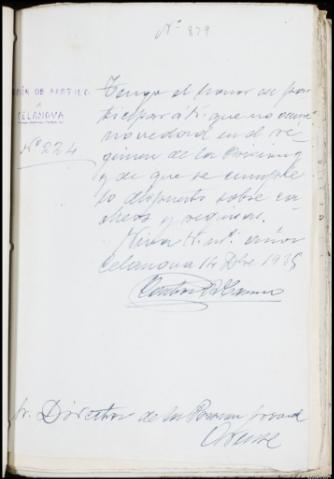 Nº 879
PRISIÓN DE PARTIDO
CELANOVA
Nº 224
Tengo el honor de par
ticipar á V. que no ocurre
novedad en el ré
gimen de la Prisión
y de que se cumple
lo dispuesto sobre ca
cheos y requisas.
Viva V. mº. años
Celanova 14 Dbre 1935
Sr. Director de la Prisión
Orense